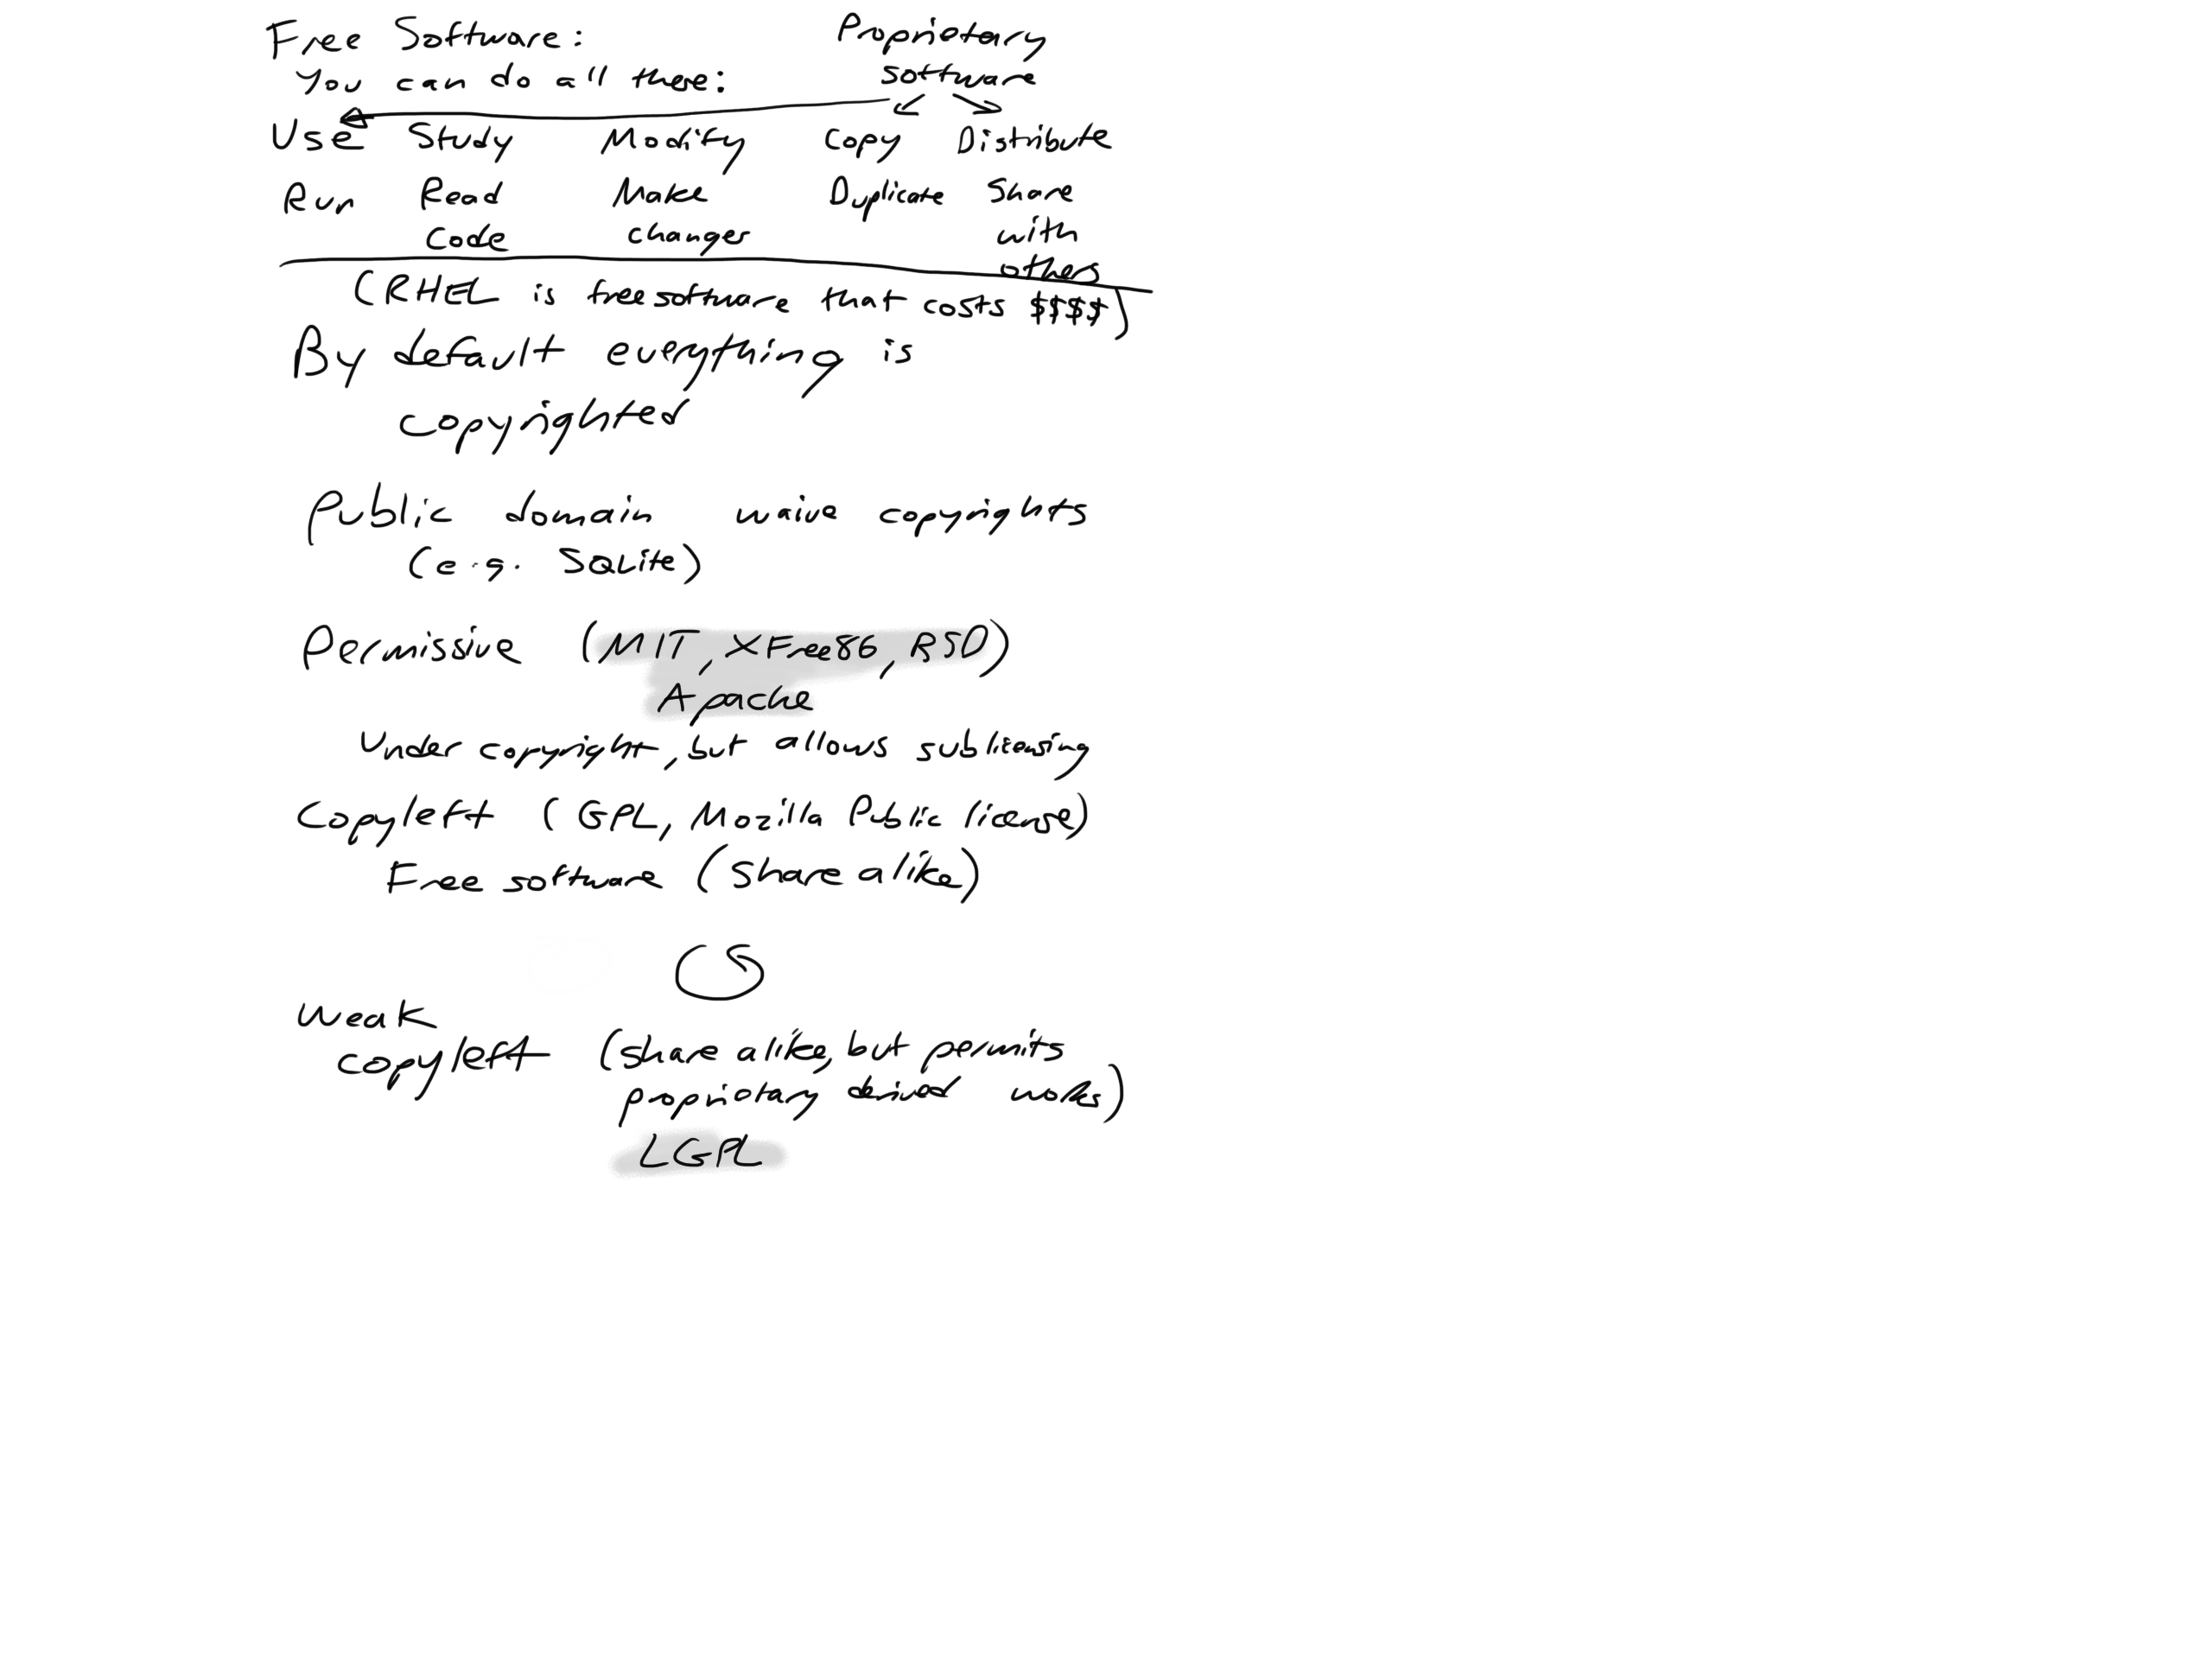 Free Software:
You can do all these:
Proprietary
software
Use Study Modify Copy Distribute
Run Read Make Duplicate Share
Code changes with
others
(RHEL is free software that costs $$$$)
By default everything is
copyrighted
Public domain waive copyrights
(e.g. SQLite)
Permissive (MIT, XFree86, BSD)
Apache
Under copyright, but allows sublicensing
Copyleft (GPL, Mozilla Public license)
Free software (Share alike)
Weak
copyleft (share alike, but permits
proprietary derived works)
LGPL